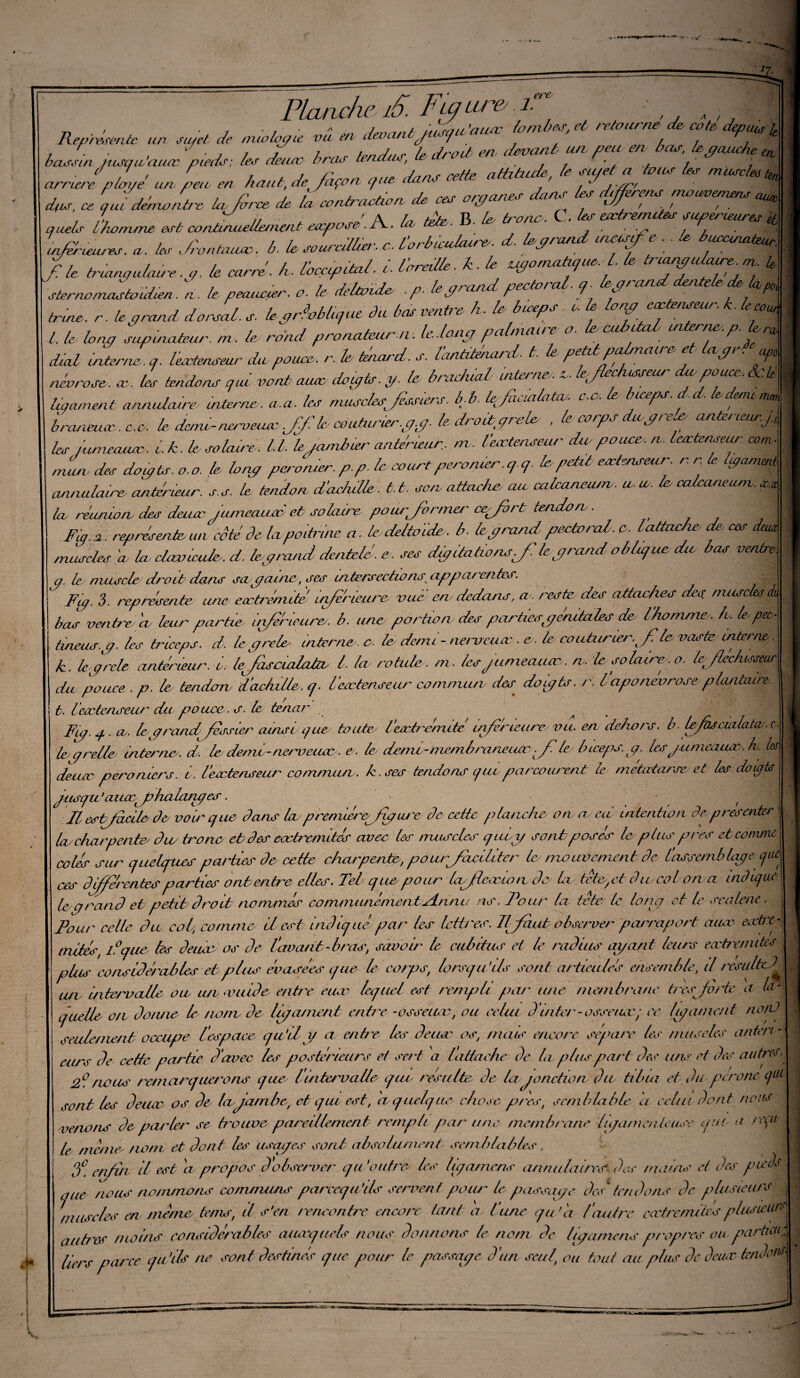 17.
Planche 15. Figure 1.ere
Représente un sujet de miologie vû en devant jusqu'aux lombes, et retourné de coté depuis le
bassin jusqu'aux pieds: les deux bras tendus, le droit en devant un peu en bas, le gauche en
arriere ployé un peu en haut, de façon que dans cette attitude, le sujet a tous les muscles ten
dus, ce qui démontre la force de la contraction de ces organes dans les différens mouvemens aux
quels l'homme est continuellement exposé. A. la tête. B. le tronc. C. les extremités supérieures et
inférieures. a. les frontaux. b. le sourcillier. c. l'orbiculaire. d. le grand incisif e . le buccinateur.
f. le triangulaire. g. le carré. h. l'occipital. i. l'oreille. k. le zigomatique. l. le triangulaire. m. le
sternomastoïdien. n. le peaucier. o. le deltoïde. p. le grand pectoral. q. le grand dentelé de la poi
trine. r. le grand dorsal. s. le gr.d oblique du bas ventre h. le biceps. i. le long extenseur. k. le cour
l. le long supinateur. m. le rond pronateur. n. le long palmaire o. le cubital interne. p. le ra
dial interne. q. l'extenseur du pouce. r. le ténard. s. l'antiténard. t. le petit palmaire et la gr.de apo
névrose. x. les tendons qui vont aux doigts. y. le brachial interne. z. le fléchisseur du pouce. &c le
ligament annulaire interne. a.a. les muscles fessiers. b.b. le facialata. c.c. le biceps. d.d. le demi mem
braneux. c.c. le demi-nerveux f.f. le couturier. g.g. le droit grele , le corps du grele antérieur. j.i.
les jumeaux. i.k. le solaire. l.l. le jambier antérieur. m. l'extenseur du pouce. n. l'extenseur com-
mun des doigts. o.o. le long peronier. p.p. le court peronier. q.q. le petit extenseur. r.r. le ligament
annulaire antérieur. s.s. le tendon d'achille. t.t. son attache au calcaneum. u.u. le calcaneum. x.x.
la réunion des deux jumeaux et solaire pour former ce fort tendon.
Fig. 2. représente un côté de la poitrine a. le deltoïde. b. le grand pectoral. c. l'attache de ces deux
muscles a la clavicule. d. le grand dentelé. e. ses digitations f. le grand oblique du bas ventre.
g. le muscle droit dans sa gaine, ses intersections apparentes.
Fig. 3. représente une extrémité inférieure vue en dedans, a. reste des attaches des muscles du
bas ventre a leur partie inférieure. b. une portion des parties génitales de l'homme. h. le pec-
tineus. g. les triceps. d. le grele interne. c. le demi-nerveux. e. le couturier. f. le vaste interne.
k. le grele antérieur. i. le fascialata l. la rotule. m. les jumeaux. n. le solaire. o. le flechisseur
du pouce. p. le tendon d'achille. q. l'extenseur commun des doigts. r. l'aponévrose plantaire.
t. l'extenseur du pouce. s. le ténar
Fig. 4. a. le grand fessier ainsi que toute l'extrémité inférieure vû en dehors. b. le fascialata. c.
le grelle interne. d. le demi-nerveux. e. le demi-membraneux. f. le biceps. g. les jumeaux. h. les
deux peroniers. i. l'extenseur commun. k. ses tendons qui parcourent le métatarse et les doigts
jusqu'aux phalanges.
Il est facile de voir que dans la premiére figure de cette planche on a eu intention de présenter
la charpente du tronc et des extremités avec les muscles qui y sont posés le plus près et comme
colés sur quelques parties de cette charpente, pour faciliter le mouvement de l'assemblage que
ces différentes parties ont entre elles. Tel que pour la flexion de la tête, et du col on a indiqué
le grand et petit droit nommés communément Annu ns. Pour la tête le long et le scalene.
Pour celle du col, comme il est indiqué par les lettres. Il faut observer par raport aux extré-
mités, 1.° que les deux os de l'avant-bras, savoir le cubitus et le radius ayant leurs extremités
plus considérables et plus évasées que le corps, lorsqu'ils sont articulés ensemble, il résulte
un intervalle ou un vuide entre eux lequel est rempli par une membrane très forte a la-
quelle on donne le nom de ligament entre-osseux, ou celui d'inter-osseux; ce ligament non
seulement occupe l'espace qu'il y a entre les deux os, mais encore sépare les muscles antéri-
eurs de cette partie d'avec les postérieurs et sert a l'attache de la plus part des uns et des autres.
2.° nous remarquerons que l'intervalle qui résulte de la jonction du tibia et du péroné qui
sont les deux os de la jambe, et qui est, a quelque chose près, semblable a celui dont nous
venons de parler se trouve pareillement rempli par une membrane ligamenteuse qui a reçu
le même nom et dont les usages sont absolument semblables.
3.° enfin il est a propos d'observer qu'outre les ligamens annulaires des mains et des pieds
que nous nommons communs parcequ'ils servent pour le passage des tendons de plusieurs
muscles en même tems, il s'en rencontre encore tant a l'une qu'a l'autre extremités plusieurs
autres moins considérables auxquels nous donnons le nom de ligamens propres ou particu-
liers parce qu'ils ne sont destinés que pour le passage d'un seul, ou tout au plus de deux tendons